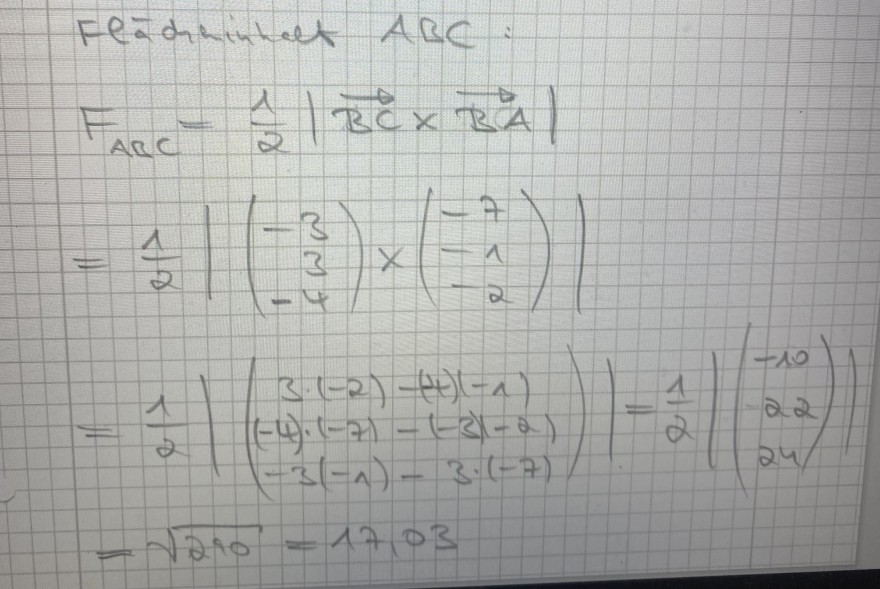 Flächeninhalt ABC :
F_ABC = 1/2 | B⃗C⃗ × B⃗A⃗ |
= 1/2 | (-3, 3, -4) × (-7, -1, -2) |
= 1/2 | (3·(-2) -(-4)(-1), (-4)·(-7) - (-3)(-2), -3(-1) - 3·(-7)) | = 1/2 | (-10, 22, 24) |
= √290 = 17,03